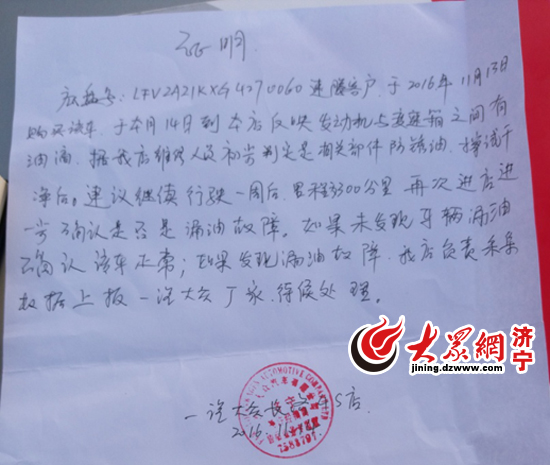 证明
底盘号:LFV2A21KXG4270060 速腾客户于2016年11月13日
购买该车、于本月14日到本店反映发动机与变速箱之间有
油滴。据我店维修人员初步判定是相关部件防锈油、擦试干
净后。建议继续行驶一周后、里程3300公里 再次进店进
一步确认是否是漏油故障。如果未发现车辆漏油
确认该车正常;如果发现漏油故障、我店负责采集
数据上报一汽大众厂家、待候处理。
AUTOMOTIVE COMPANY
一汽大众 4S店
2016.11
大众网 济宁
jining.dzwww.com